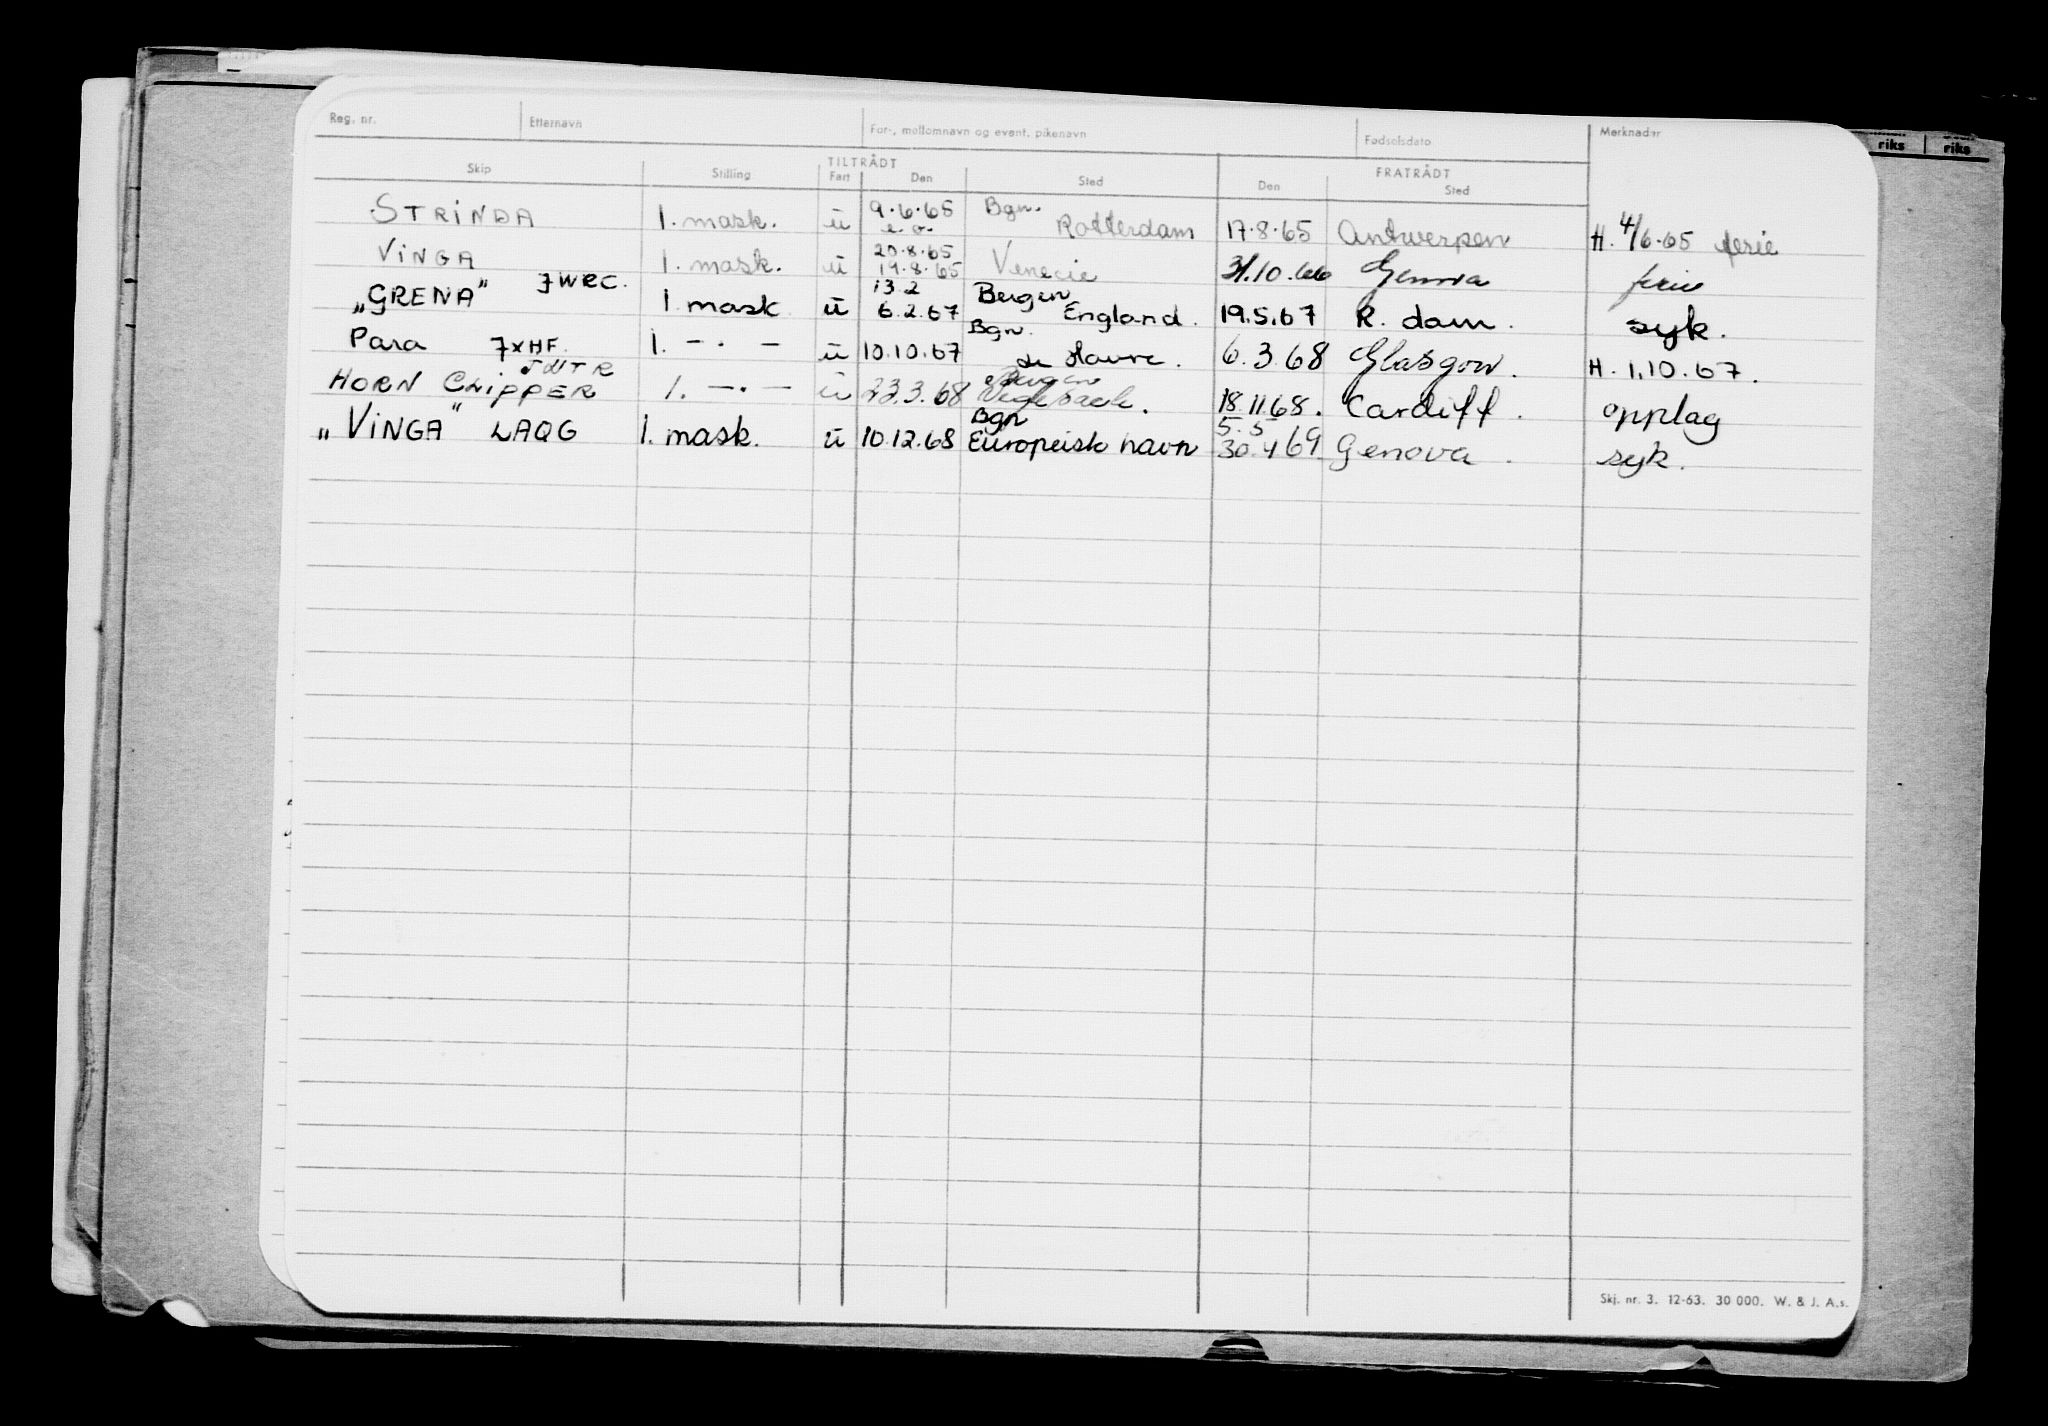 Reg. nr. Etternavn For-, mellomnavn og event. pikenavn Fødselsdato Merknader
TILTRÅDT FRATRÅDT
Skip Stilling Fart Den Sted Den Sted
riks riks
STRINDA 1. mask. ü 9.6.65 Bgn. Rotterdam 17.8.65 Antwerpen H. 4/6.65 ferie
20.8.65
VINGA 1. mask. ü 19.8.65 Venecie 31.10.66 Genova ferie
13.2 Bergen
"GRENA" JWRC. 1. mask ü 6.2.67 England. 19.5.67 R. dam. syk.
Bgn.
Para JXHF. 1. - . - ü 10.10.67 Le Havre. 6.3.68 Glasgow. H. 1.10.67.
Bergen
HORN CLIPPER 1. - . - ü 23.3.68 Vegesack. 18.11.68. Cardiff. opplag
Bgn 5.5
"VINGA" LAQG 1. mask. ü 10.12.68 Europeisk havn 30.4 69 Genova. syk.
Skj. nr. 3. 12-63. 30 000. W. & J. A.s.